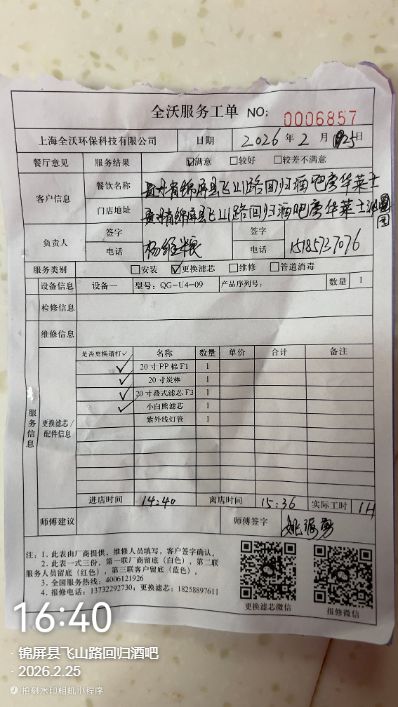 全沃服务工单 NO: 0006857
上海全沃环保科技有限公司 日期 2026年2月25日
餐厅意见 服务结果 ☑满意 □较好 □较差不满意
客户信息 餐饮名称 贵州省锦屏县飞山路回归酒吧旁华莱士
门店地址 贵州省锦屏县飞山路回归酒吧旁华莱士
负责人 签字 签字
电话 杨 电话 15185727076
服务类别 □安装 ☑更换滤芯 □维修 □管道消毒
设备信息 设备一 型号: QG-U4-09 产品序列号: 数量 1
检修信息
维修信息
服务信息
更换滤芯/配件信息
是否更换请打✓ 名称 数量 单价 合计 备注
✓ 20寸PP棉F1 1
✓ 20寸炭棒 1
✓ 20寸叠式滤芯F3 1
✓ 小白熊滤芯 1
紫外线灯管 1
进店时间 14:40 离店时间 15:36 实际工时 1H
师傅建议 师傅签字
注: 1. 此表由厂商提供、维修人员填写，客户签字确认。
2. 此表一式三份，第一联厂商留底（白色），第二联
服务人员留底（红色），第三联客户留底（蓝色）。
3. 全国服务热线: 4006121926
4. 报修电话: 13732292730, 更换滤芯: 18258897611
更换滤芯微信 报修微信
16:40
· 锦屏县飞山路回归酒吧
· 2026.2.25
今日水印相机小程序